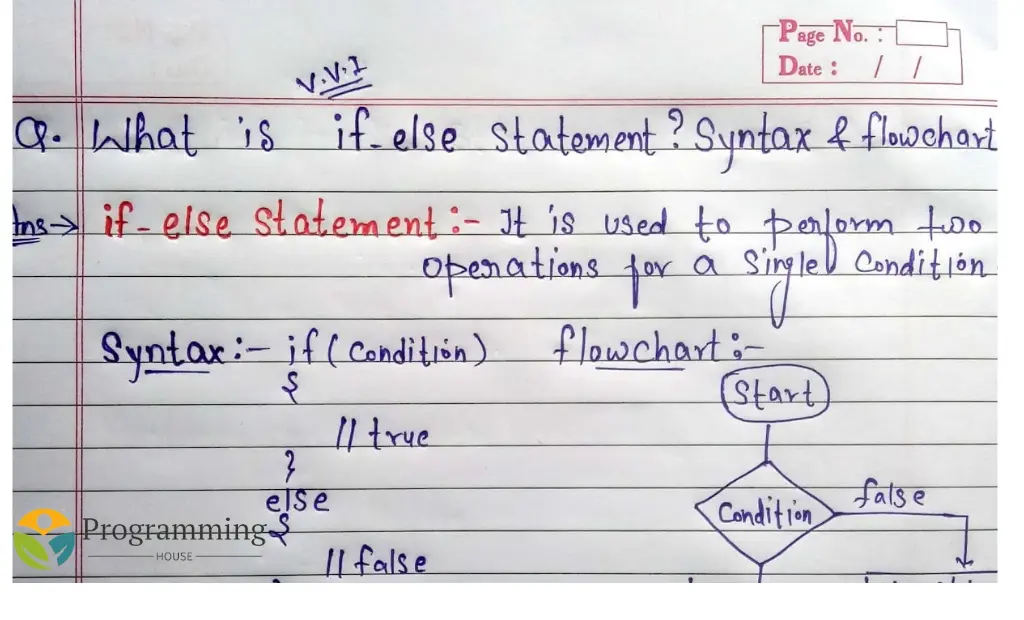 Page No. :
Date : / /
V.V.I
Q. What is if-else Statement? Syntax & flowchart
Ans→ if-else Statement:- It is used to perform two
operations for a Single Condition
Syntax:- if (Condition)
{
// true
}
else
{
// false
flowchart:-
Start
Condition
false
Programming
HOUSE